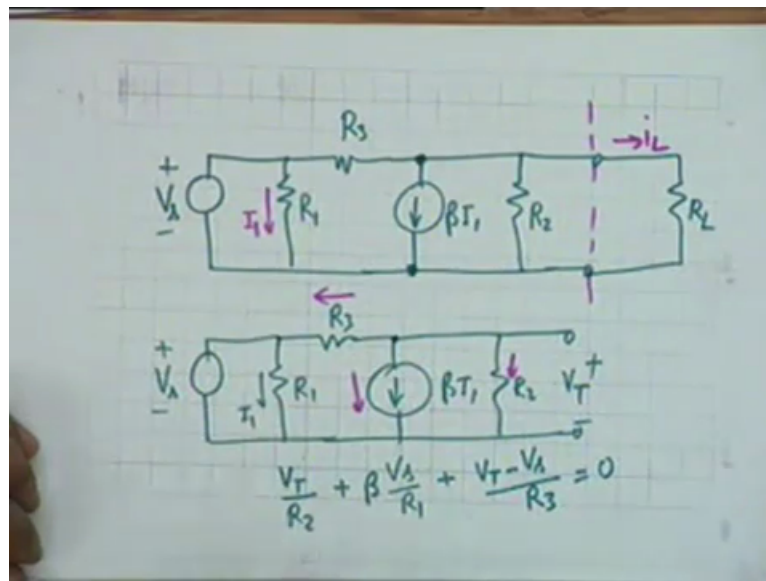 R3
→ iL
+
Vs
-
I1 ↓ R1
↓ βI1
R2
RL
←
R3
+
Vs
-
I1 ↓ R1
↓ βI1
R2
VT
+
-
VT/R2 + β Vs/R1 + (VT - Vs)/R3 = 0